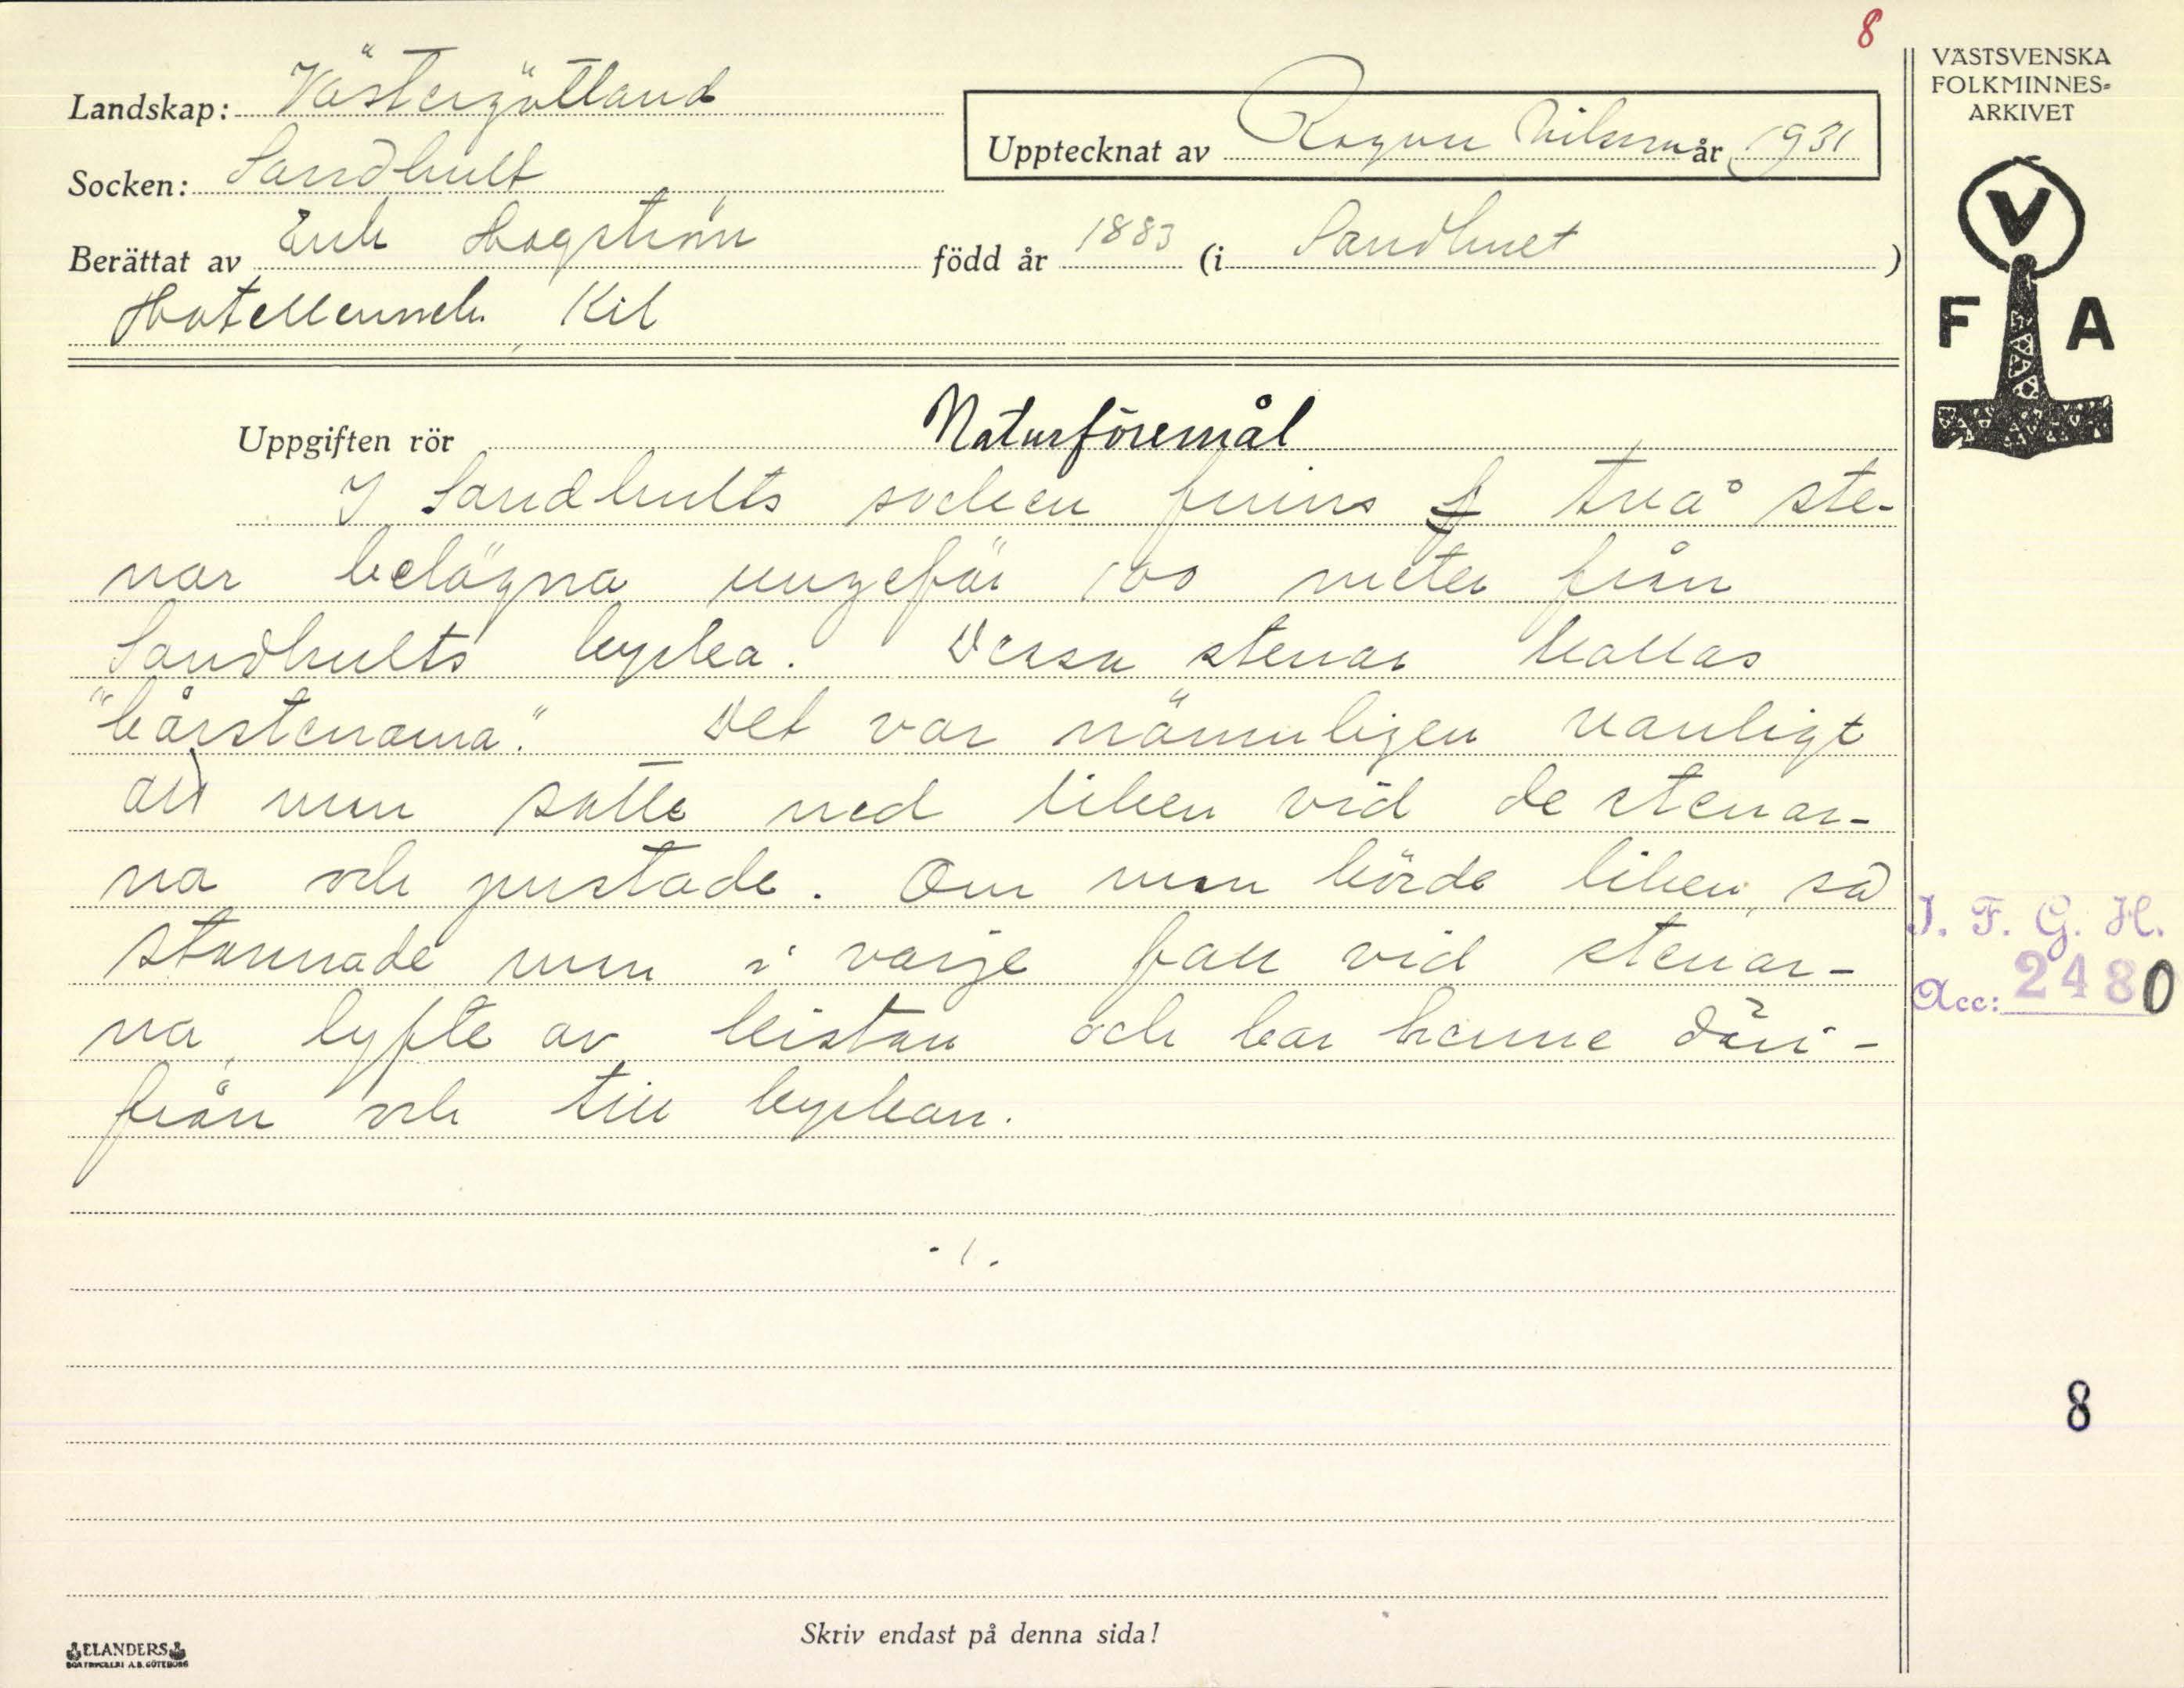 8
VÄSTSVENSKA
FOLKMINNES-
ARKIVET
Landskap: Västergötland
Upptecknat av Ragnar Nilsson år 1931
Socken: Sandhult
Berättat av Erik Hagström född år 1883 (i Sandhult)
Kil
V
F A
Uppgiften rör Naturföremål
I Sandhults socken finns två ste-
nar belägna ungefär 100 meter från
Sandhults kyrka. Dessa stenar kallas
"bårstenarna". Det var nämnligen vanligt
att man satte ned liken vid de stenar-
na och pustade. Om man körde liken, så
stannade man i varje fall vid stenar-
na, lyfte av kistan och bar henne däri-
från och till kyrkan.
- / .
I. F. G. H.
Acc: 2480
8
Skriv endast på denna sida!
ELANDERS
BOKTRYCKERI A.B. GÖTEBORG